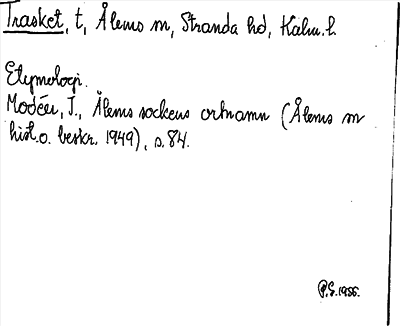 Trasket, t, Ålems sn, Stranda hd, Kalm. l.
Etymologi.
Modéer, I., Ålems sockens ortnamn (Ålems sn
hist. o. beskr. 1949), s. 84.
P.S. 1956.